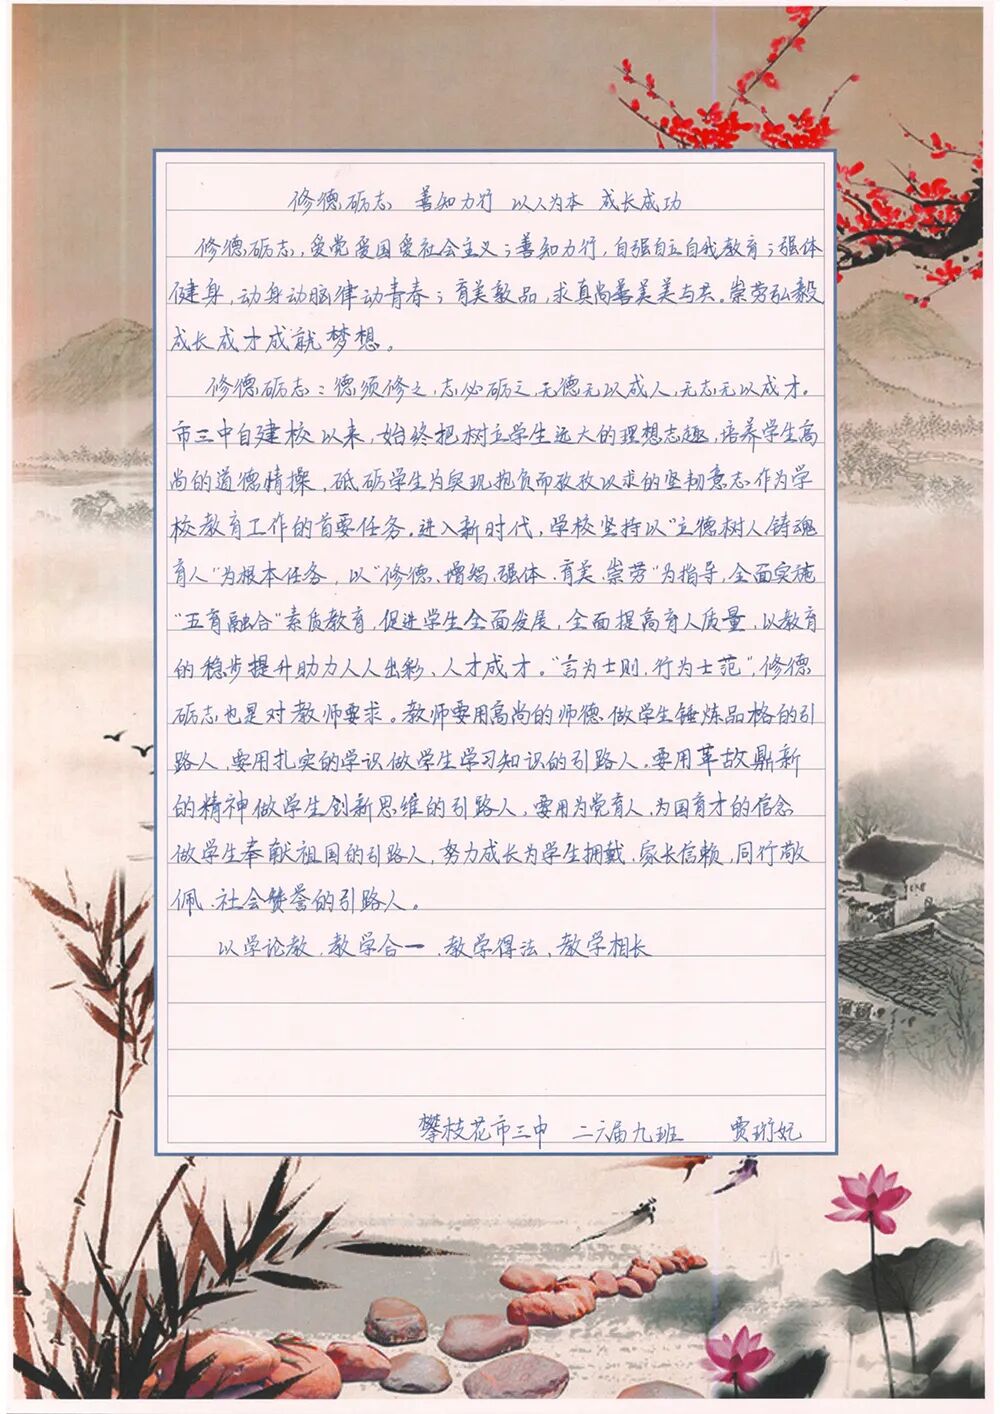 修德砺志 善知力行 以人为本 成长成功
修德砺志，爱党爱国爱社会主义；善知力行，自强自立自我教育；强体
健身，动身动脑律动青春；育美教品，求真尚善美美与共。崇劳弘毅
成长成才成就梦想。
修德砺志：德须修之，志必砺之，无德无以成人，无志无以成才。
市三中自建校以来，始终把树立学生远大的理想志趣，培养学生高
尚的道德情操，砥砺学生为实现抱负而孜孜以求的坚韧意志作为学
校教育工作的首要任务。进入新时代，学校坚持以“立德树人铸魂
育人”为根本任务，以“修德、增智、强体、育美、崇劳”为指导，全面实施
“五育融合”素质教育，促进学生全面发展，全面提高育人质量，以教育
的稳步提升助力人人出彩、人才成才。“言为士则，行为士范”，修德
砺志也是对教师要求。教师要用高尚的师德做学生锤炼品格的引
路人，要用扎实的学识做学生学习知识的引路人。要用革故鼎新
的精神做学生创新思维的引路人，要用为党育人、为国育才的信念
做学生奉献祖国的引路人，努力成长为学生拥戴、家长信赖，同行敬
佩、社会赞誉的引路人。
以学论教、教学合一、教学得法、教学相长
攀枝花市三中 二六届九班 贾珩妃